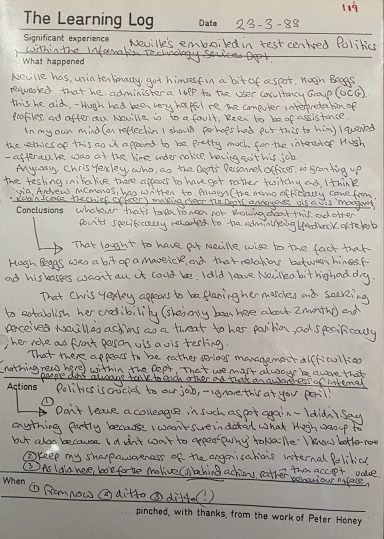 119
The Learning Log Date 23-3-88
Significant experience Neville's embroiled in test centred Politics
within the Information Technology Services Dept.
What happened
Neville has, unintentionally got himself in a bit of a spot. Hugh Beggs
requested that he administer a 16PF to the User Consultancy Group (UCG).
this he did, - Hugh had been very helpful re the computer interpretation of
profiles and after all Neville is to a fault, keen to be of assistance.
In my own mind (on reflection I should perhaps had put this to him) I queried
the ethics of this as it appeared to be pretty much for the interest of Hugh
- after all he was at the time under notice having quit his job
Anyway, Chris Yexley who, as the Dept's Personnel officer, is granting up
the testing initiative there appears to have got rather twitchy and, I think
via, Andrew McManus, has written to Alwyn (the name officially came from
the chief officer) making clear the Dept's annoyance vis a vis
Conclusions whatever that's taken to mean not knowing about this, and other
points specifically related to the administering / feedback of tests
That I ought to have put Neville wise to the fact that
Hugh Beggs was a bit of a maverick, and that relations between himself
and his bosses wasn't all it could be. I did leave Neville a bit high and dry.
That Chris Yexley appears to be flexing her muscles and seeking
to establish her credibility (she's only been here about 2 months) and
perceived Neville's actions as a threat to her position, and specifically
her role as front person vis a vis testing.
That there appears to be rather serious management difficulties
(nothing new here) within the Dept. That we must always be aware that
people don't always talk to each other and that an awareness of internal
Actions Politics is crucial to our job, - ignore this at your peril!
① Don't leave a colleague in such a spot again - I didn't say
anything partly because I wasn't sure in detail what Hugh was up to
but also because I didn't want to appear 'pushy' to Neville - I know better now
② Keep my sharp awareness of the organisation's internal Politics
③ As I did here, look for the motive(s) behind actions, rather than accept
behaviour on face value
When ① From now ② ditto ③ ditto (!)
....pinched, with thanks, from the work of Peter Honey